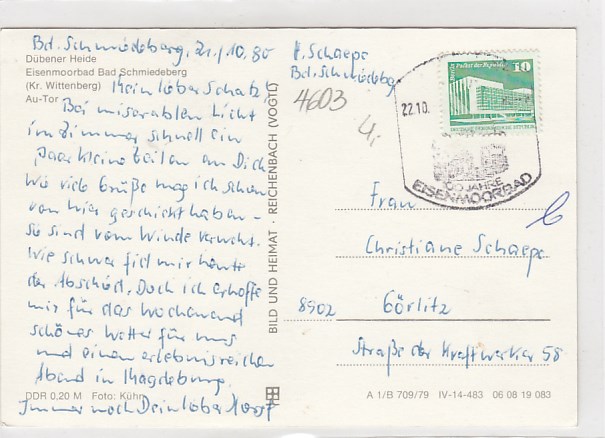 Bd. Schmiedeberg, 21./10. 80
Dübener Heide
Eisenmoorbad Bad Schmiedeberg
(Kr. Wittenberg)
Au-Tor
Mein lober Schatz,
Bei miserablen Licht
im Zimmer schnell ein
paar kleine Zeilen an Dich
Wie viele Grüße mag ich schon
von hier geschickt haben -
sie sind vom Winde verweht.
Wie schwer fiel mir heute
der Abschied. Doch ich erhoffe
mir für das Wochenend
schönes Wetter für uns
und einen erlebnisreichen
Abend in Magdeburg.
Immer noch Dein lober Horst
DDR 0,20 M Foto: Kühn
BILD UND HEIMAT · REICHENBACH (VOGTL)
H. Schaepe
Bd. Schmiedeberg
4603
22.10.
10
JAHRE
EISENMOORBAD
Frau
Christiane Schaepe
8902 Görlitz
Straße der Kraftwerker 58
A 1/B 709/79 IV-14-483 06 08 19 083